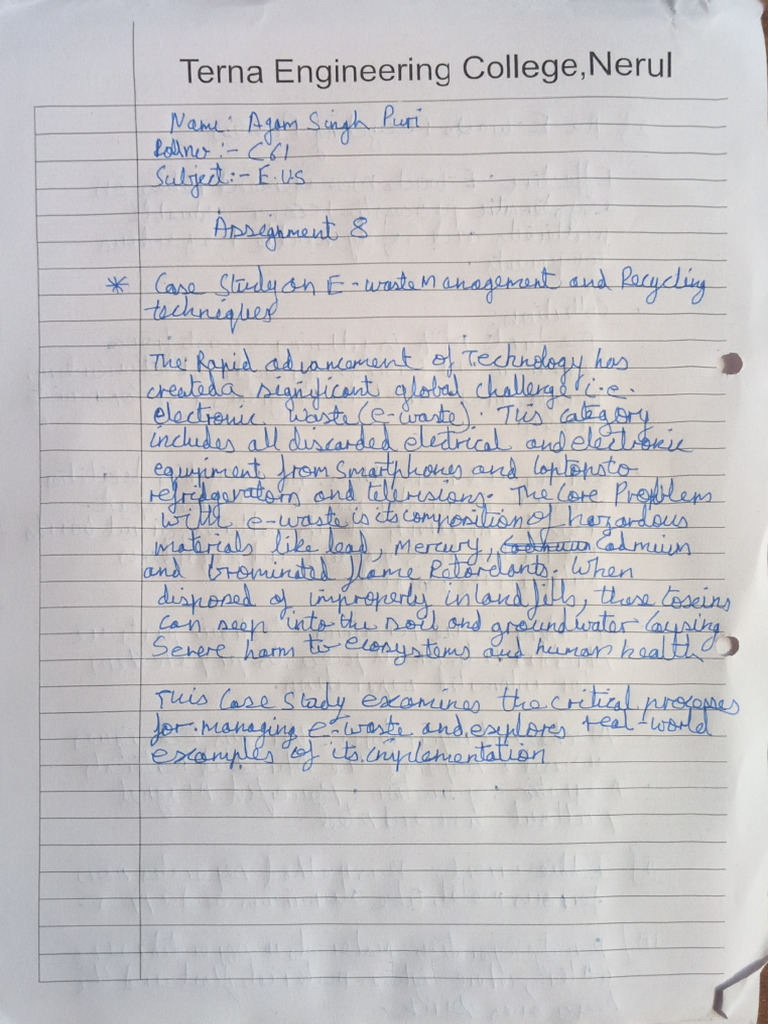 Terna Engineering College,Nerul
Name: Agam Singh Puri
Rollno:- C61
Subject:- E.VS
Assignment 8
* Case Study on E-waste Management and Recycling
techniques
The Rapid advancement of Technology has
created a significant global challenge i.e.
electronic waste (e-waste). This category
includes all discarded electrical and electronic
equipment from smartphones and laptops to
refridgerators and televisions. The Core Problem
with e-waste is its composition of hazardous
materials like lead, mercury, Cadmium
and brominated flame Retardants. When
disposed of improperly in land fills, these toxins
can seep into the soil and ground water Causing
Severe harm to ecosystems and human health
This Case Study examines the critical processes
for managing e-waste and explores real-world
examples of its implementation